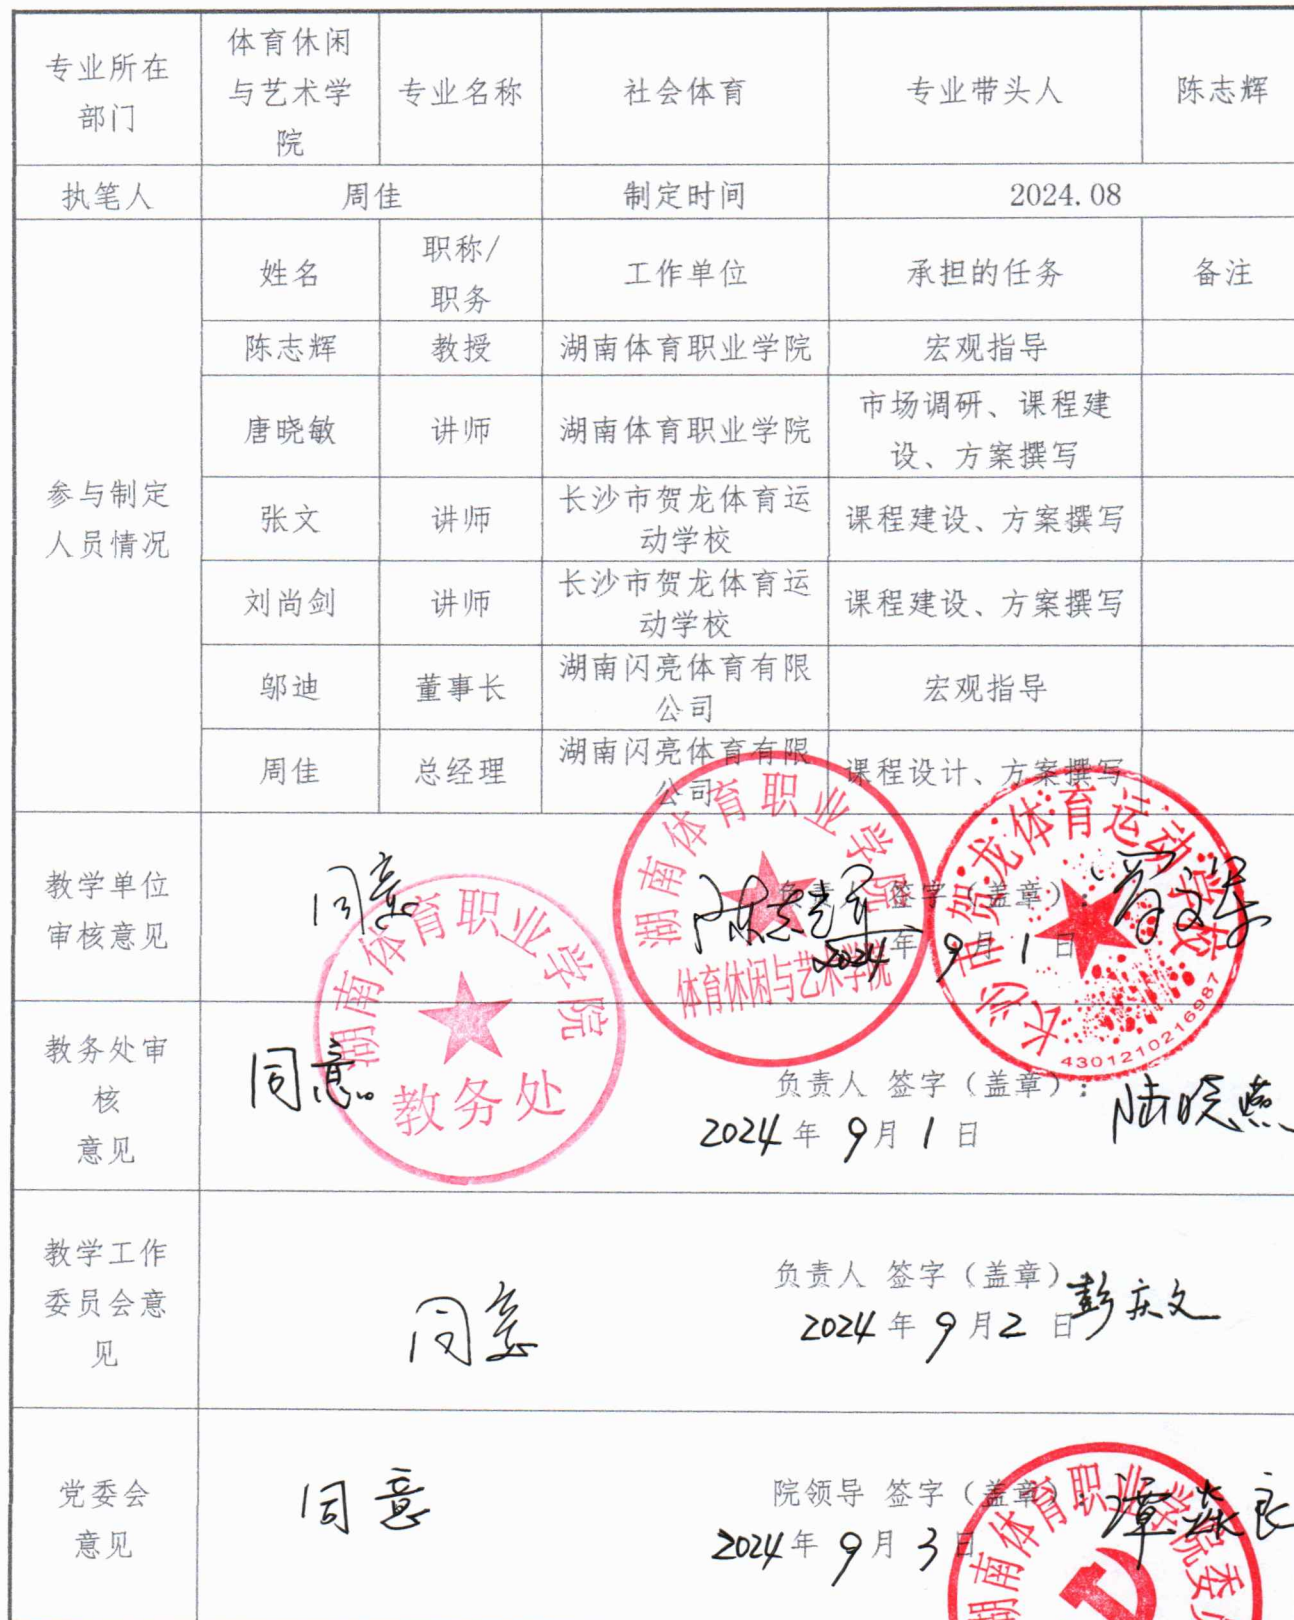 专业所在
部门
体育休闲
与艺术学
院
专业名称
社会体育
专业带头人
陈志辉
执笔人
周佳
制定时间
2024.08
参与制定
人员情况
姓名
职称/
职务
工作单位
承担的任务
备注
陈志辉
教授
湖南体育职业学院
宏观指导
唐晓敏
讲师
湖南体育职业学院
市场调研、课程建
设、方案撰写
张文
讲师
长沙市贺龙体育运
动学校
课程建设、方案撰写
刘尚剑
讲师
长沙市贺龙体育运
动学校
课程建设、方案撰写
邬迪
董事长
湖南闪亮体育有限
公司
宏观指导
周佳
总经理
湖南闪亮体育有限
公司
课程设计、方案撰写
教学单位
审核意见
同意
负责人 签字（盖章）：
陈志辉
2024年 9月 1日
湖南体育职业学院
体育休闲与艺术学院
长沙市贺龙体育运动学校
4301210216987
教务处审
核
意见
同意。
湖南体育职业学院
教务处
负责人 签字（盖章）：
陆晓燕
2024年 9月 1日
教学工作
委员会意
见
同意
负责人 签字（盖章）
彭庆文
2024年 9月2日
党委会
意见
同意
院领导 签字（盖章）：
谭焱良
2024年 9月3日
湖南体育职业学院委